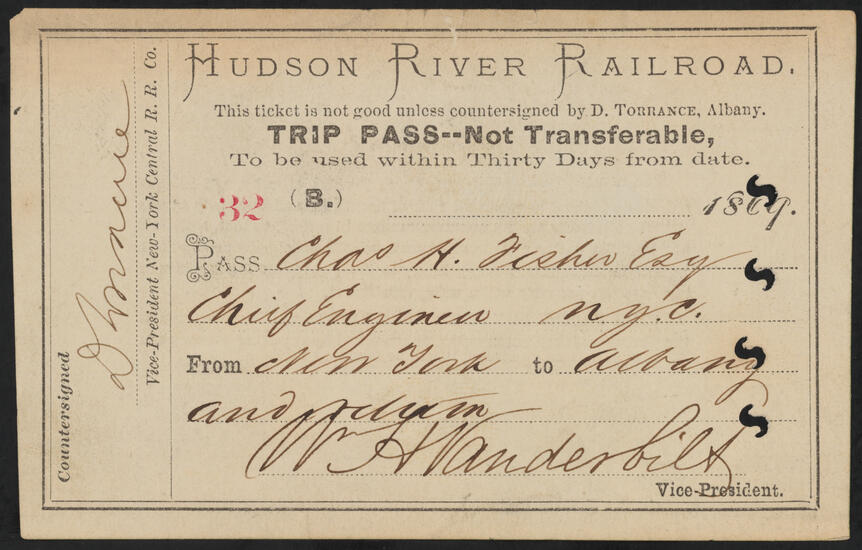 HUDSON RIVER RAILROAD.
This ticket is not good unless countersigned by D. TORRANCE, Albany.
TRIP PASS--Not Transferable,
To be used within Thirty Days from date.
32 (B.) 1869.
PASS Chas H. Fisher Esq
Chief Engineer N.Y.C.
From New York to Albany
and return
Wm H Vanderbilt
Vice-President.
Countersigned
D Torrance
Vice-President New-York Central R. R. Co.